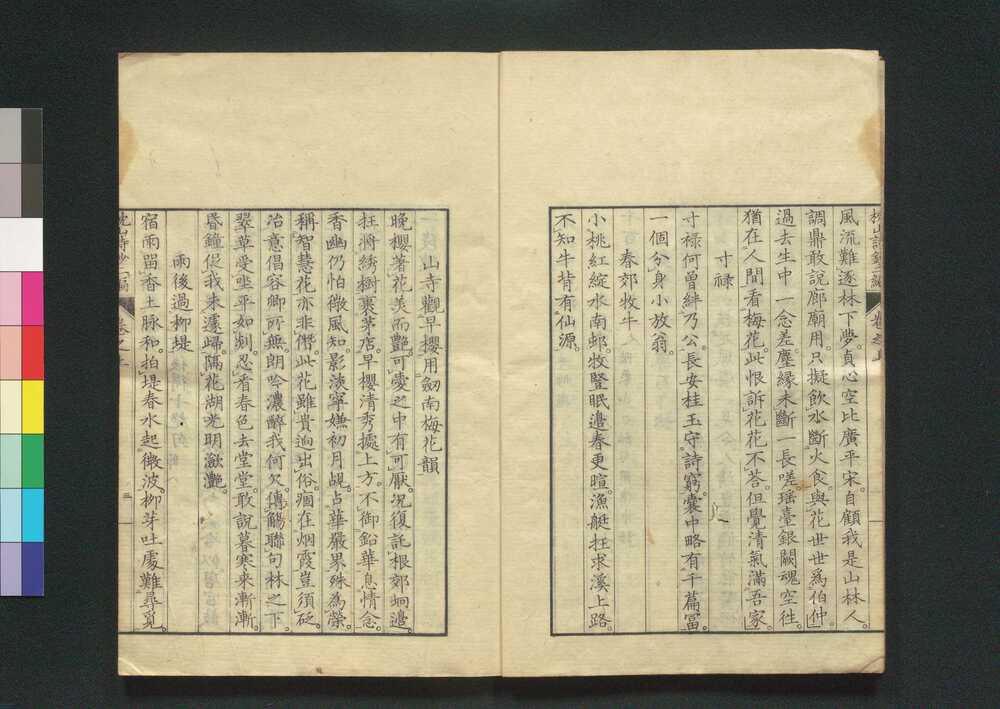 風流難逐林下夢。貞心空比廣平宋。自顧我是山林人。
調鼎敢說廊廟用。只擬飲水斷火食。與花世世爲伯仲。
過去生中一念差。塵緣未斷一長嗟。瑶臺銀闕魂空徃。
猶在人間看梅花。此恨訴花花不荅。但覺清氣滿吾家。
寸禄
寸禄何曾絆乃公。長安桂玉守詩窮。囊中略有千篇冨。
一個分身小放翁。
春郊牧牛
小桃紅綻水南邨。牧豎眠邉春更暄。漁艇枉求溪上路。
不知牛背有仙源。
山寺觀早櫻用劒南梅花韻
晚櫻著花美而艷。可愛之中有可厭。况復託根郊坰邉。
狂將綉樹裹茅店。早櫻清秀據上方。不御鉛華息情念。
香幽仍怕微風知。影淡寧嫌初月覘。占華嚴界殊為榮。
稱智慧花亦非僭。此花雖貴逈出俗。痼在烟霞豈須砭。
冶意倡容卿所無。朗吟濃醉我何欠。傳觴聯句林之下。
翠草受坐平如剡。忍看春色去堂堂。敢說暮寒来漸漸。
昏鐘促我来遽歸。隔花湖光明瀲灔。
雨後過柳堤
宿雨留香土脉和。拍堤春水起微波。柳芽吐處難尋覓。